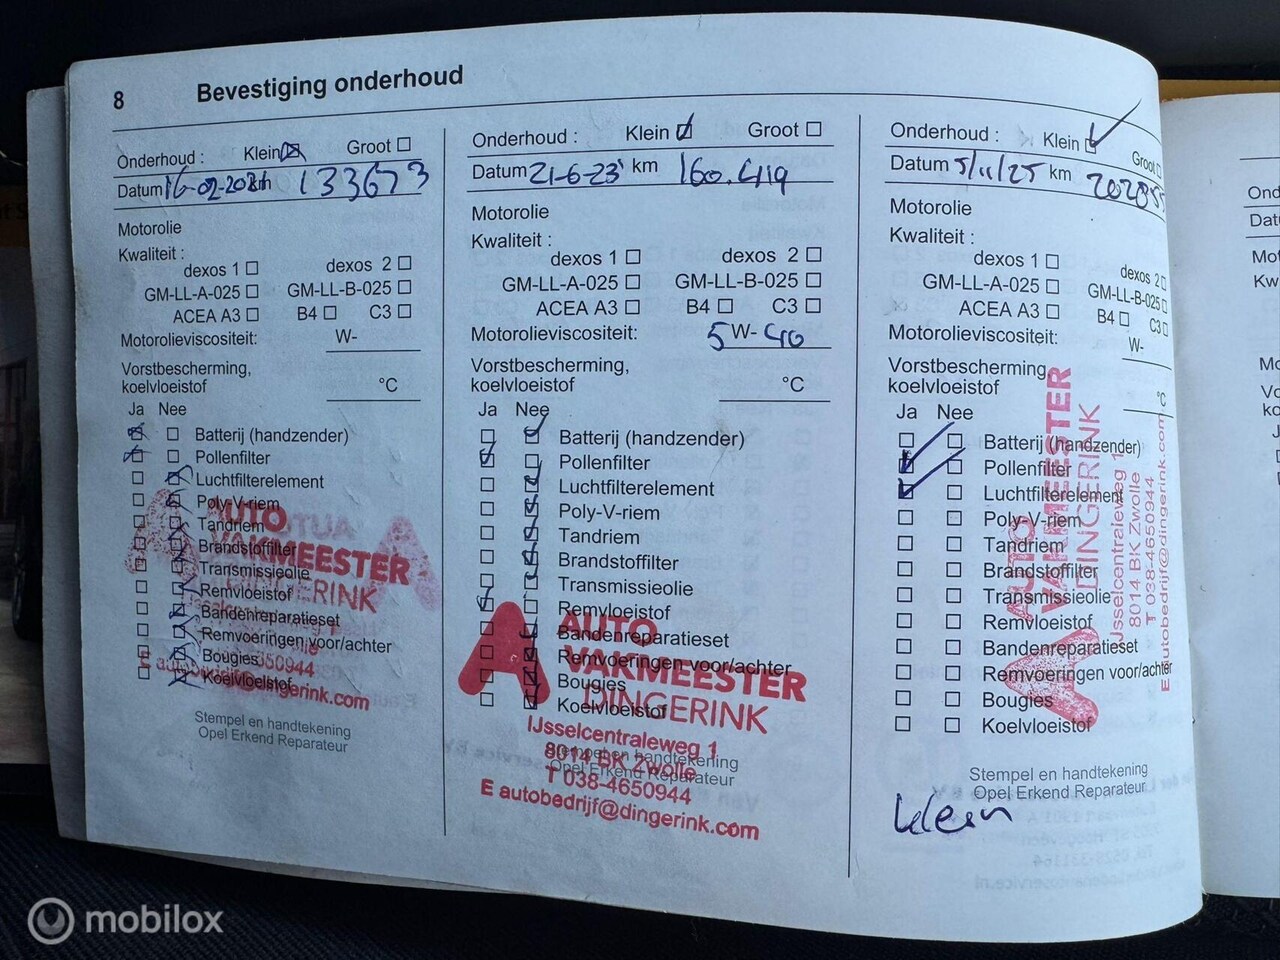 8 Bevestiging onderhoud
Onderhoud : Klein Groot
Datum 16-02-202 km 133673
Motorolie
Kwaliteit :
dexos 1 dexos 2
GM-LL-A-025 GM-LL-B-025
ACEA A3 B4 C3
Motorolieviscositeit: W-
Vorstbescherming,
koelvloeistof °C
Ja Nee
Batterij (handzender)
Pollenfilter
Luchtfilterelement
Poly-V-riem
Tandriem
Brandstoffilter
Transmissieolie
Remvloeistof
Bandenreparatieset
Remvoeringen voor/achter
Bougies
Koelvloeistof
AUTO
VAKMEESTER
DINGERINK
Stempel en handtekening
Opel Erkend Reparateur
Onderhoud : Klein Groot
Datum 21-6-23 km 160.419
Motorolie
Kwaliteit :
dexos 1 dexos 2
GM-LL-A-025 GM-LL-B-025
ACEA A3 B4 C3
Motorolieviscositeit: 5 W- 40
Vorstbescherming,
koelvloeistof °C
Ja Nee
Batterij (handzender)
Pollenfilter
Luchtfilterelement
Poly-V-riem
Tandriem
Brandstoffilter
Transmissieolie
Remvloeistof
Bandenreparatieset
Remvoeringen voor/achter
Bougies
Koelvloeistof
AUTO
VAKMEESTER
DINGERINK
IJsselcentraleweg 1
8014 BK Zwolle
T 038-4650944
E autobedrijf@dingerink.com
Stempel en handtekening
Opel Erkend Reparateur
Onderhoud : Klein Groot
Datum 5/11/25 km
Motorolie
Kwaliteit :
dexos 1 dexos 2
GM-LL-A-025 GM-LL-B-025
ACEA A3 B4 C3
Motorolieviscositeit: W-
Vorstbescherming,
koelvloeistof °C
Ja Nee
Batterij (handzender)
Pollenfilter
Luchtfilterelement
Poly-V-riem
Tandriem
Brandstoffilter
Transmissieolie
Remvloeistof
Bandenreparatieset
Remvoeringen voor/achter
Bougies
Koelvloeistof
AUTO
VAKMEESTER
DINGERINK
IJsselcentraleweg 1
8014 BK Zwolle
T 038-4650944
E autobedrijf@dingerink.com
Stempel en handtekening
Opel Erkend Reparateur
Klein
mobilox